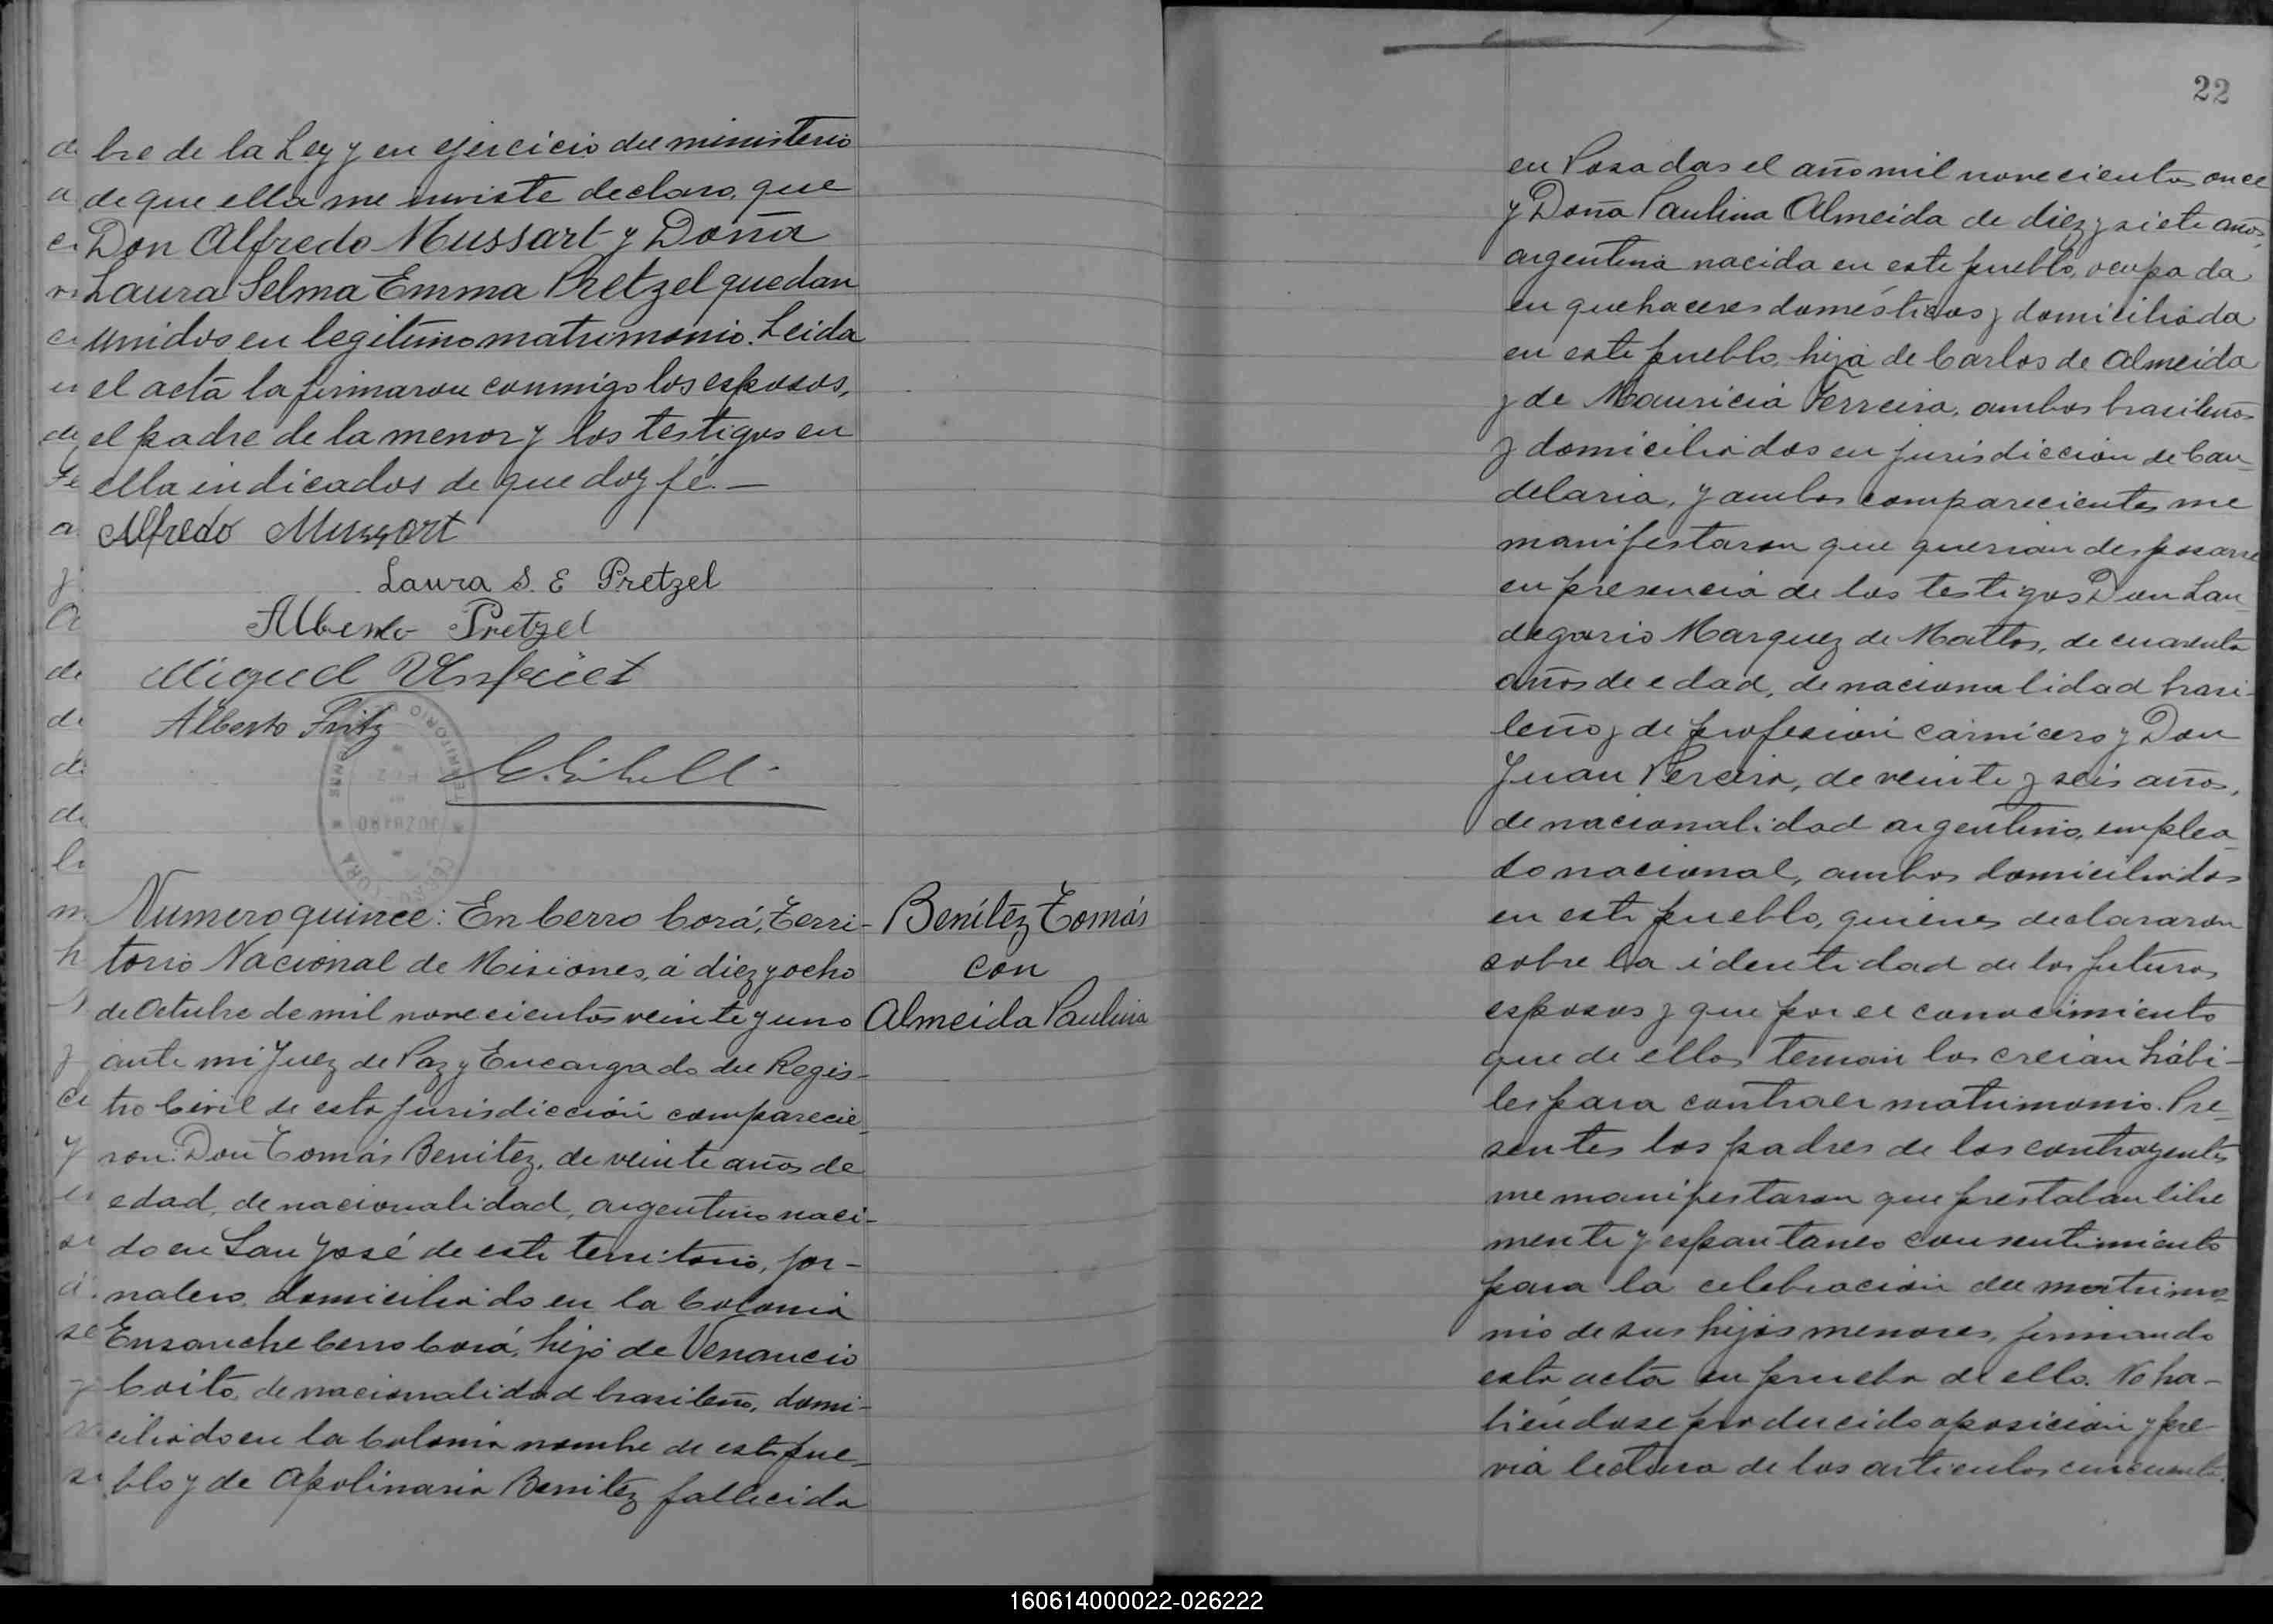 bre de la Ley y en ejercicio del ministerio
de que ella me inviste declaro, que
Don Alfredo Mussart y Doña
Laura Selma Emma Pretzel quedan
unidos en legitimo matrimonio. Leida
el acta la firmaron conmigo los esposos,
el padre de la menor y los testigos en
ella indicados de que doy fé.—
Alfredo Mussart
Laura S. E Pretzel
Alberto Pretzel
Miguel
Alberto Fritz
Numero quince: En Cerro Corá, Terri-
torio Nacional de Misiones, á diez y ocho
de Octubre de mil novecientos veinte y uno
ante mi Juez de Paz y Encargado del Regis-
tro Civil de esta jurisdicción comparecie-
ron: Don Tomás Benitez, de veinte años de
edad, de nacionalidad, argentino naci-
do en San José de este territorio, jor-
nalero, domiciliado en la Colonia
Ensanche Cerro Corá, hijo de Venancio
Coito, de nacionalidad brasileño, domi-
ciliado en la Colonia nombre de este pue-
blo y de Apolinaria Benitez fallecida
Benítez Tomás
con
Almeida Paulina
22
en Posadas el año mil novecientos once
y Doña Paulina Almeida de diez y siete años,
argentina nacida en este pueblo, ocupada
en quehaceres domésticos y domiciliada
en este pueblo, hija de Carlos de Almeida
y de Mauricia Ferreira, ambos brasileños
y domiciliados en jurisdicción de Can-
delaria, y ambos comparecientes me
manifestaron que querian desposarse
en presencia de los testigos Don Lau-
degario Marquez de Mattos, de cuarenta
años de edad, de nacionalidad brasi-
leño y de profesión carnicero y Don
Juan Pereira, de veinte y seis años,
de nacionalidad argentino, emplea-
do nacional, ambos domiciliados
en este pueblo, quienes declararon
sobre la identidad de los futuros
esposos y que por el conocimiento
que de ellos tenian los creian hábi-
les para contraer matrimonio. Pre-
sentes los padres de los contrayentes
me manifestaron que prestaban libre
mente y espontaneo consentimiento
para la celebración del matrimo-
nio de sus hijos menores, firmando
esta acta en prueba de ello. No ha-
biéndose producido oposición y pre-
via lectura de los articulos cincuenta
160614000022-026222